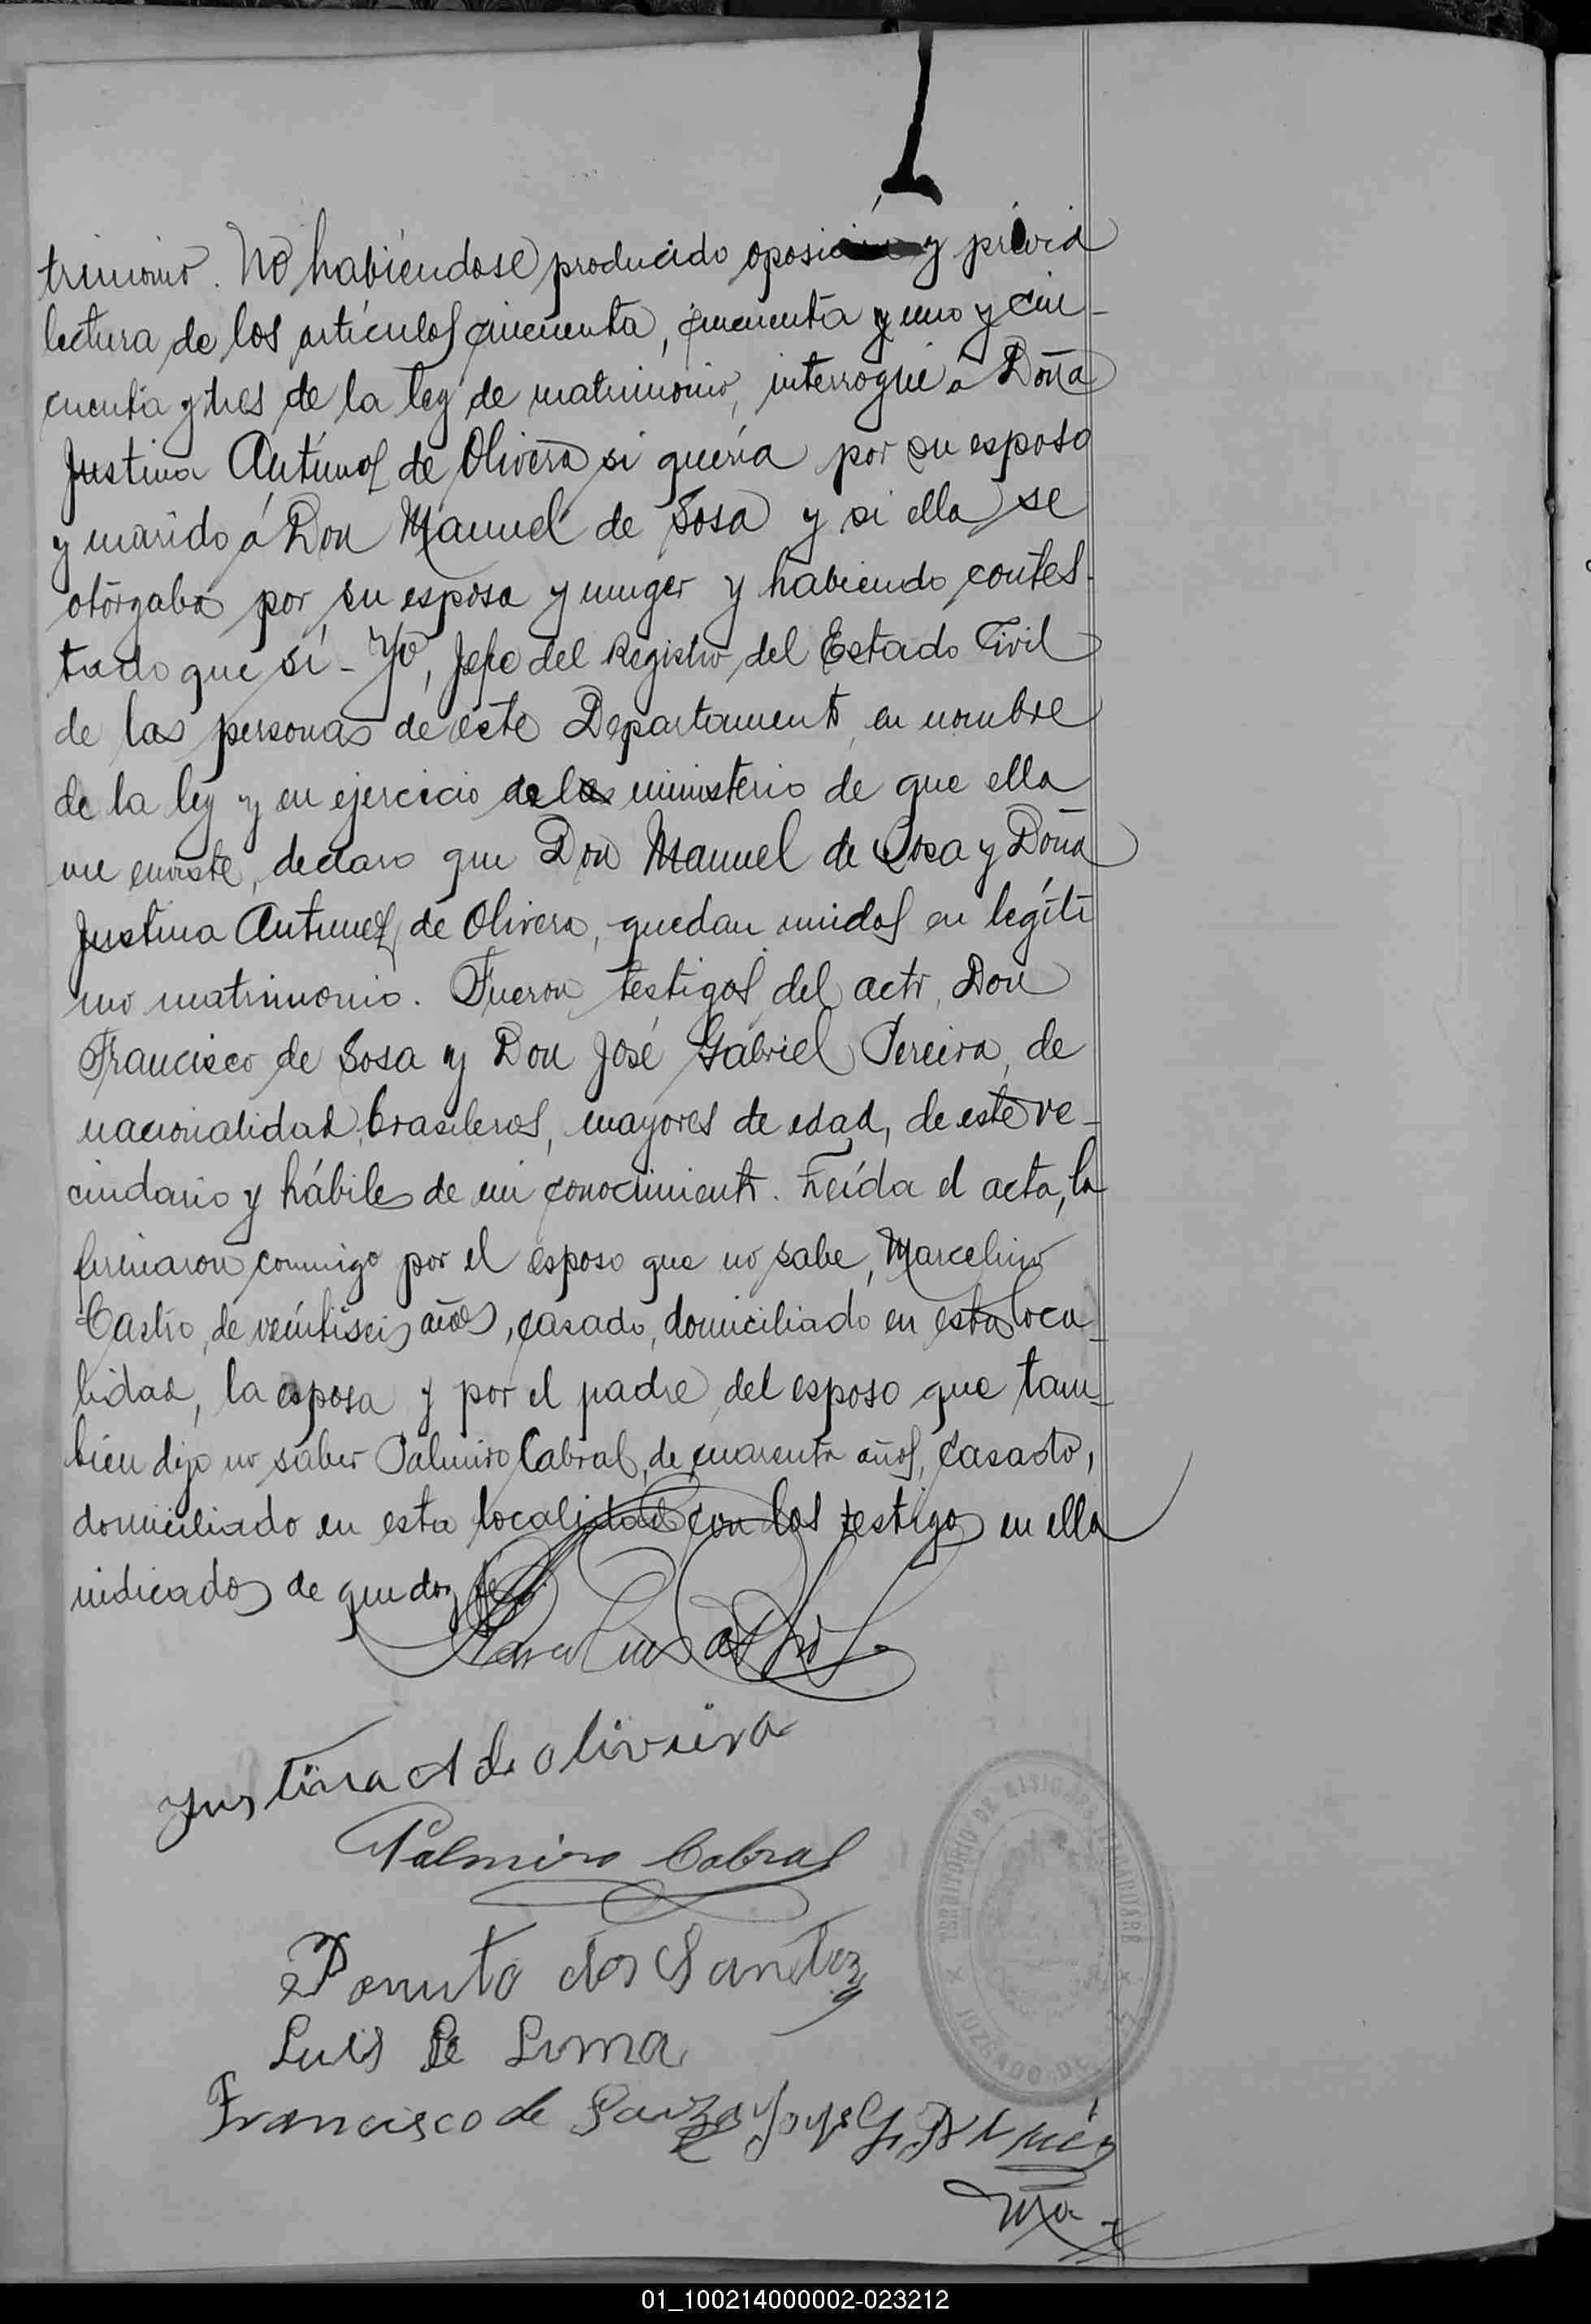 trimonio. No habiéndose producido oposición y prévia
lectura de los artículos cincuenta, cincuenta y uno y cin-
cuenta y tres de la ley de matrimonio, interrogué á Doña
Justina Antúnes de Olivera si quería por su esposo
y marido á Don Manuel de Sosa y si ella se
otórgaba por su esposa y muger y habiendo contes-
tado que sí - Yo, Jefe del Registro del Estado Civil
de las personas de este Departamento, en nombre
de la ley y en ejercicio del ministerio de que ella
me enviste, declaro que Don Manuel de Sosa y Doña
Justina Antunez de Olivera, quedan unidos en legíti
mo matrimonio. Fueron testigos del acto, Don
Francisco de Sosa y Don José Gabriel Pereira, de
nacionalidad brasileros, mayores de edad, de este ve-
cindario y hábiles de mi conocimiento. Leída el acta, la
firmaron conmigo por el esposo que no sabe, Marcelino
Castro, de veintiseis años, casado, domiciliado en esta loca-
lidad, la esposa y por el padre del esposo que tam-
bien dijo no saber Palmiro Cabral, de cuarenta años, casado,
domiciliado en esta localidad con los testigos en ella
indicados de que doy fe
Marcelino Castro
Justina A de oliveira
Palmiro Cabral
dos Santoz
Luis de Lima
Francisco de
TERRITORIO DE MISIONES
JUZGADO DE
01_100214000002-023212